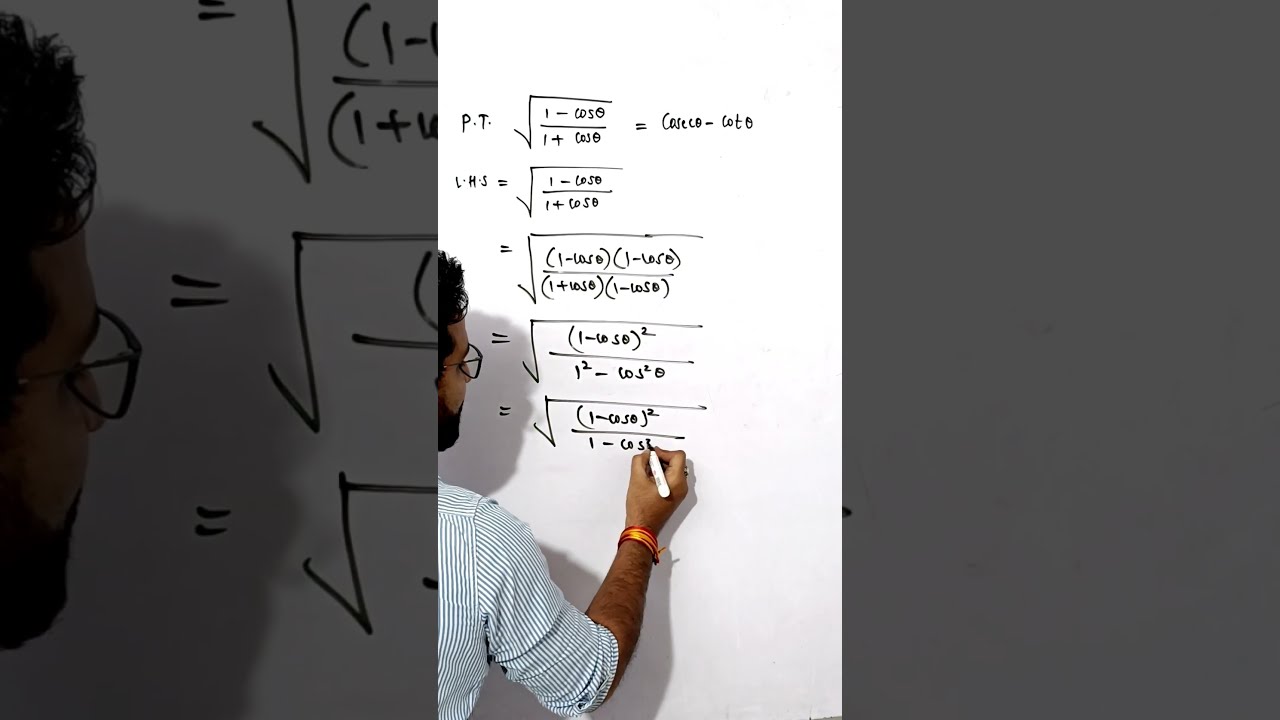 P.T. √((1 - cosθ)/(1 + cosθ)) = Cosecθ - cotθ
L.H.S = √((1 - cosθ)/(1 + cosθ))
= √(((1-cosθ)(1-cosθ))/((1+cosθ)(1-cosθ)))
= √((1-cosθ)²/(1² - cos²θ))
= √((1-cosθ)²/(1 - cos²